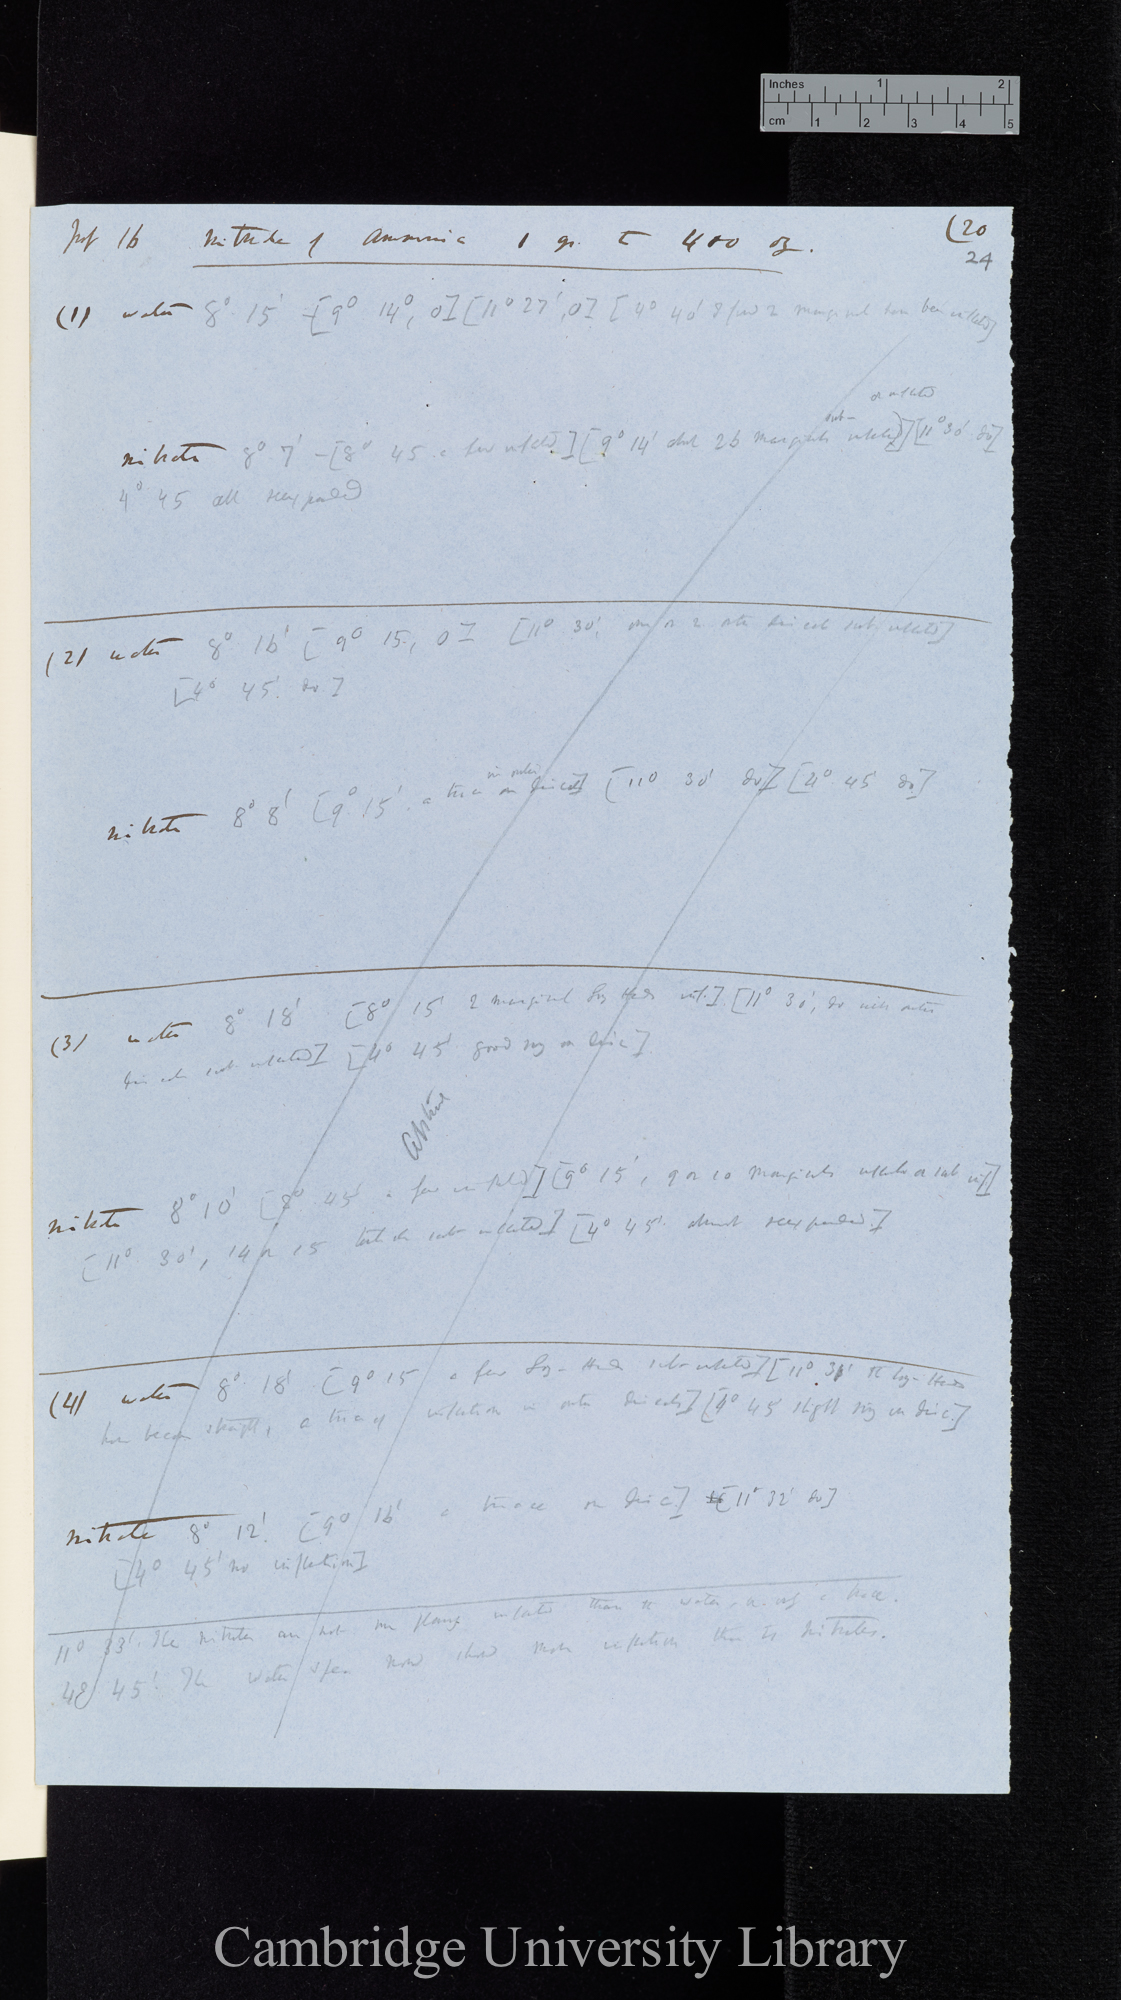 Inches 1 2
cm 1 2 3 4 5
16 Nitrate of Ammonia 1 gr. to 400 oz. (20
24
(1) water 8° 15' [9° 14°, 0] [11° 27', 0] [4° 40' 2 marginal have been inflected]
or inflected
sub-
nitrate 8° 7' - [8° 45 a few inflected] [9° 14' about 26 marginals inflected] [11° 30' do]
4° 45 all reexpanded
(2) water 8° 16' [9° 15, 0] [11° 30', one or 2 outer discals sub-inflected]
[4° 45' do]
in outer
nitrate 8° 8' [9° 15' a trace on discals] [11° 30' do] [4° 45' do]
(3) water 8° 18' [8° 15' 2 marginal long heads inf.] [11° 30', do with outer
discals sub-inflected] [4° 45' good on disc]
Abstine
nitrate 8° 10' [8° 45' a few inflected] [9° 15', 9 or 10 marginals inflected or sub inf]
[11° 30', 14 or 15 sub-inflected] [4° 45' almost reexpanded.]
(4) water 8° 18' [9° 15 a few long-heads sub-inflected] [11° 31' the long-heads
have become straight, a trace of inflection in outer discals] [4° 45' slight on disc.]
nitrate 8° 12' [9° 16' a trace on disc] [11° 32' do]
[4° 45' no inflection]
11° 33'. The nitrates are not more inflected than the water, a trace.
4° 45'. The water now show more inflection than the Nitrates.
Cambridge University Library